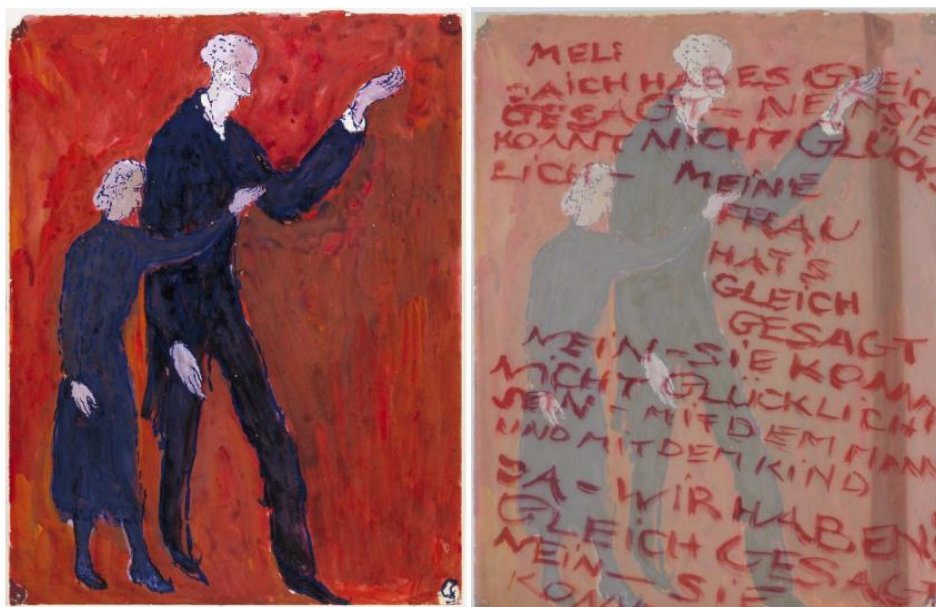 MEL:
JA ICH HAB ES GLEICH
GESAGT – NEIN SIE
KONNT NICHT GLÜCK
LICH – MEINE
FRAU
HATS
GLEICH
GESAGT
NEIN – SIE KONN
NICHT GLÜCKLICH
SEIN – MIT DEM MANN
UND MIT DEM KIND
JA – WIR HABEN
GLEICH GESAGT
NEIN – SIE
KONN